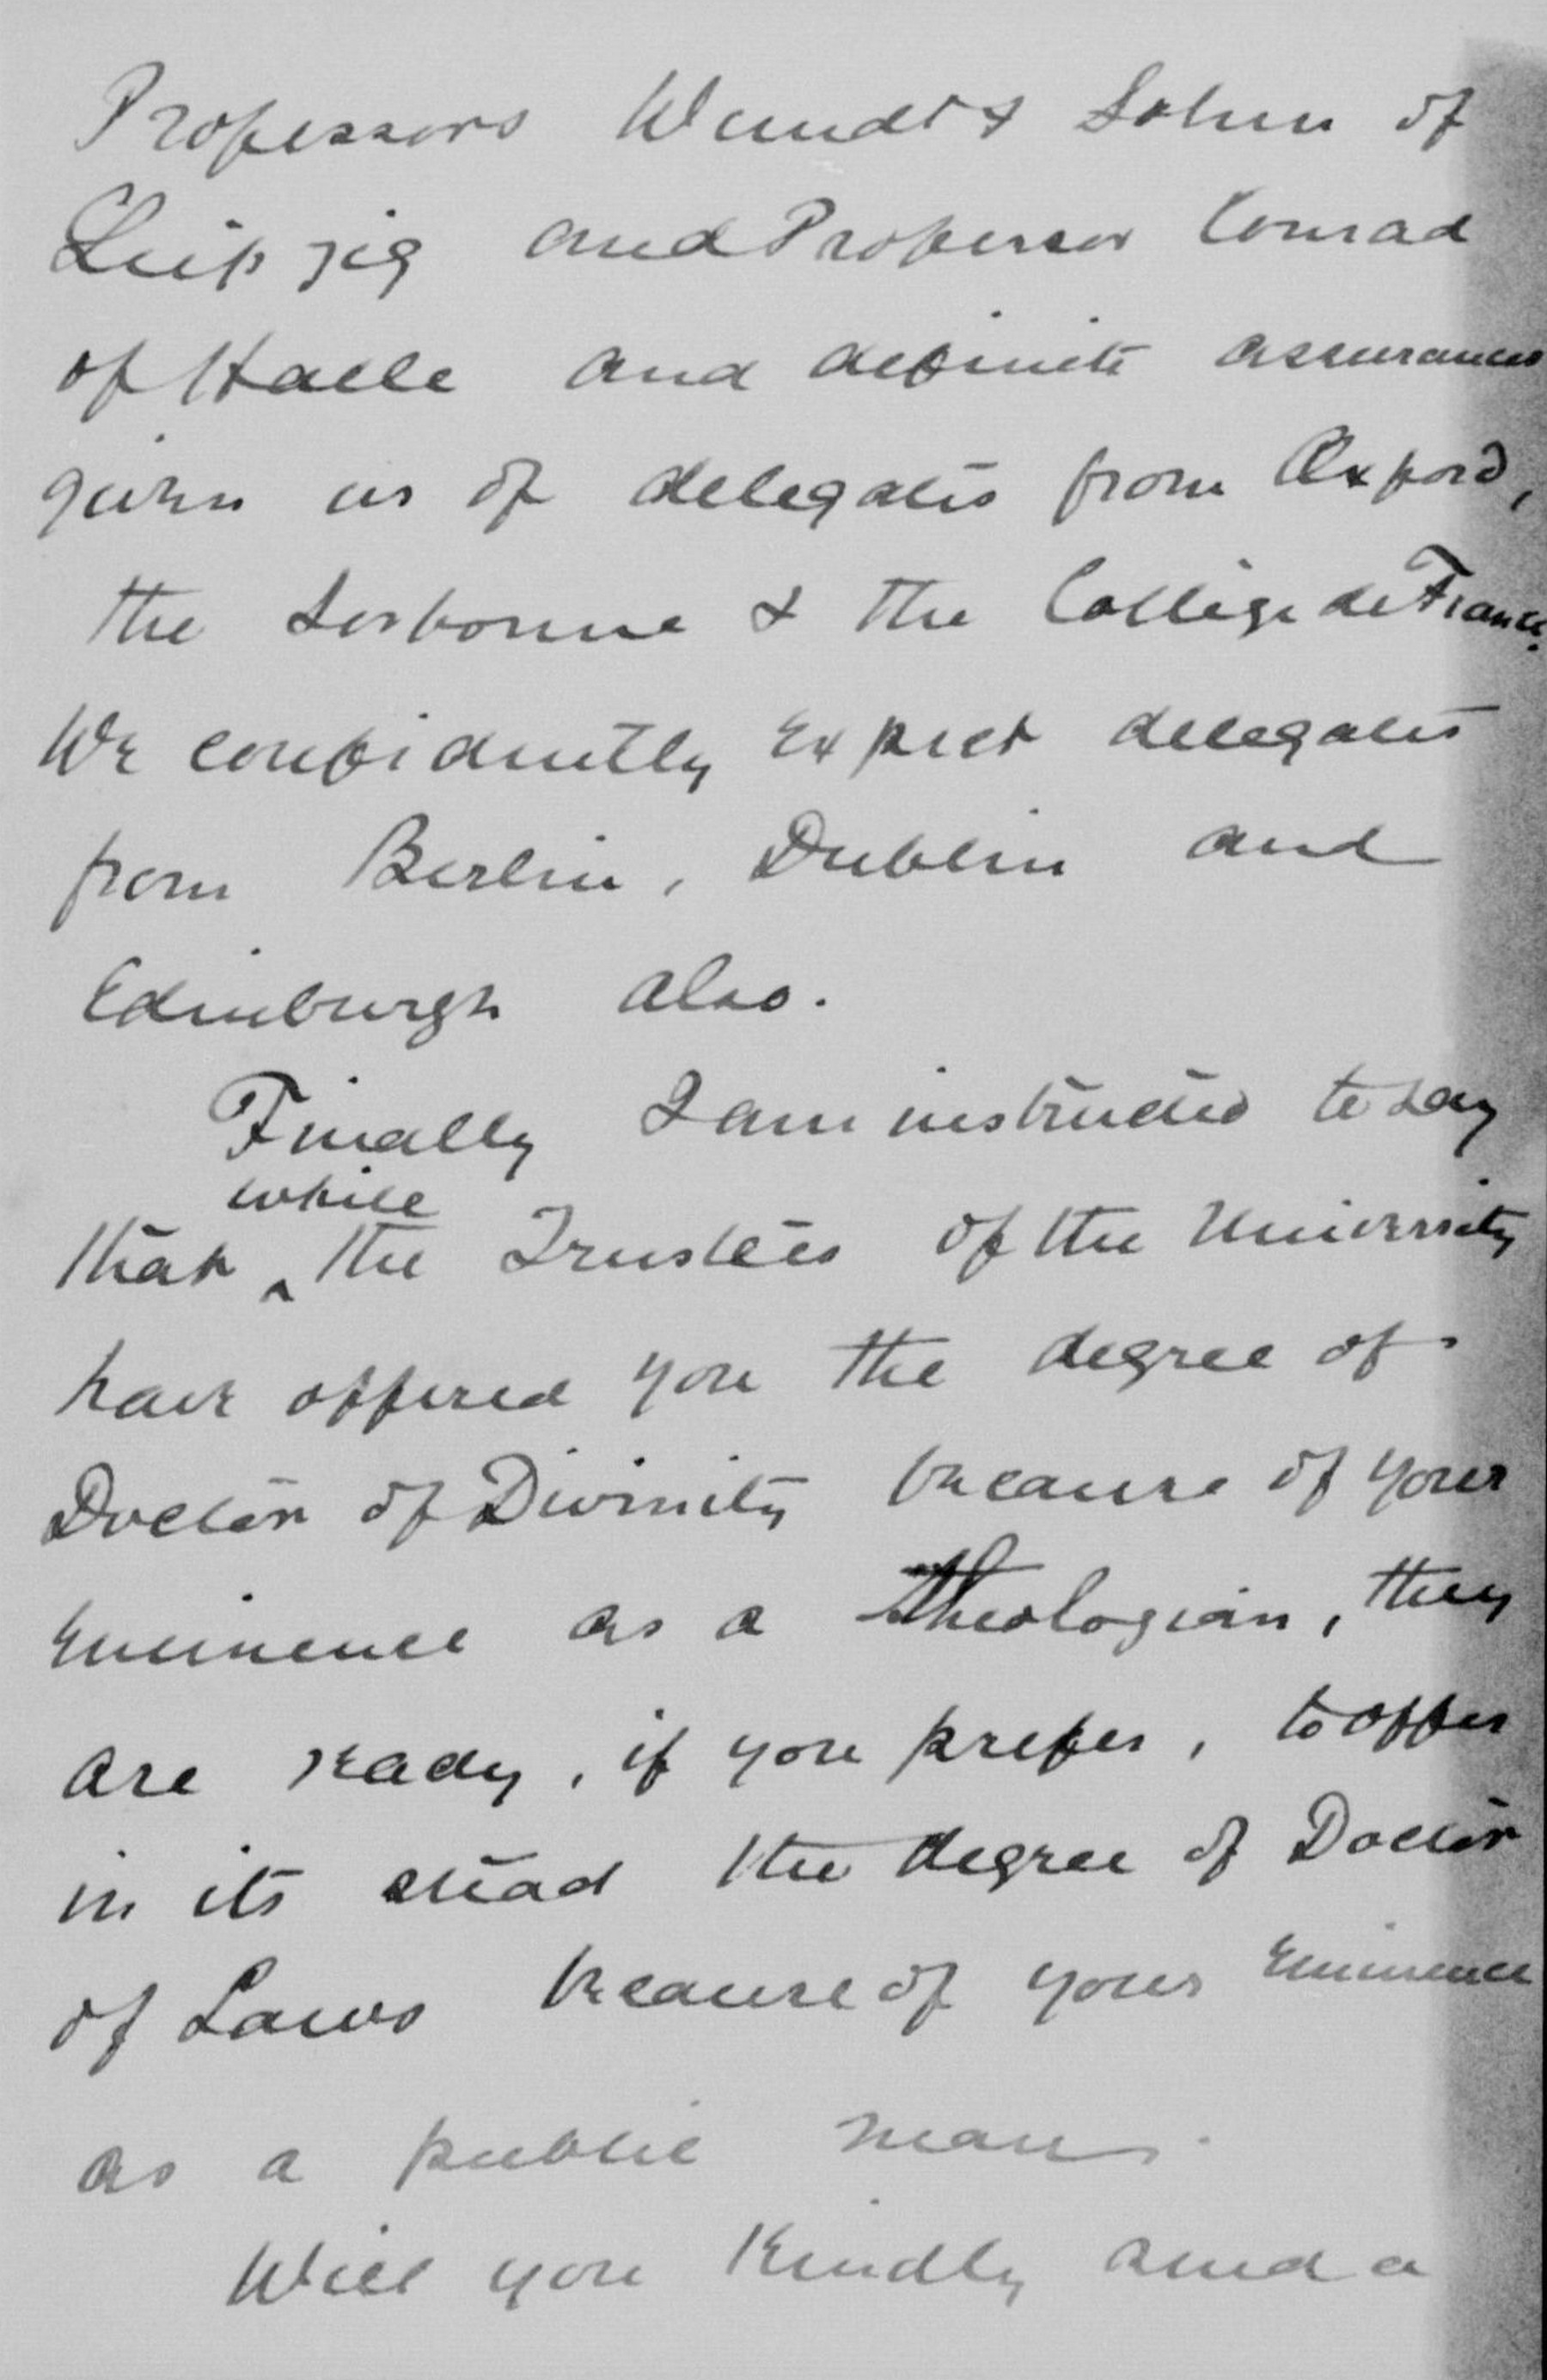 Professors Wundt & Sohm of
Leipzig and Professor Conrad
of Halle and definite assurances
given us of delegates from Oxford,
the Sorbonne & the Collège de France.
We confidently expect delegates
from Berlin, Dublin and
Edinburgh also.
Finally I am instructed to say
while
that ‸ the Trustees of the University
have offered you the degree of
Doctor of Divinity because of your
eminence as a theologian, they
are ready, if you prefer, to offer
in its stead the degree of Doctor
of Laws because of your eminence
as a public man.
Will you kindly send a